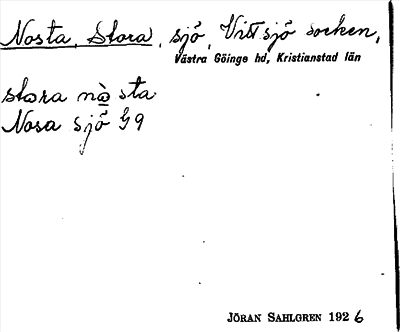 Nosta, Stora, sjö, Vittsjö socken,
Västra Göinge hd, Kristianstad län
stora nò̱sta
Nosa sjö G9
JÖRAN SAHLGREN 1926